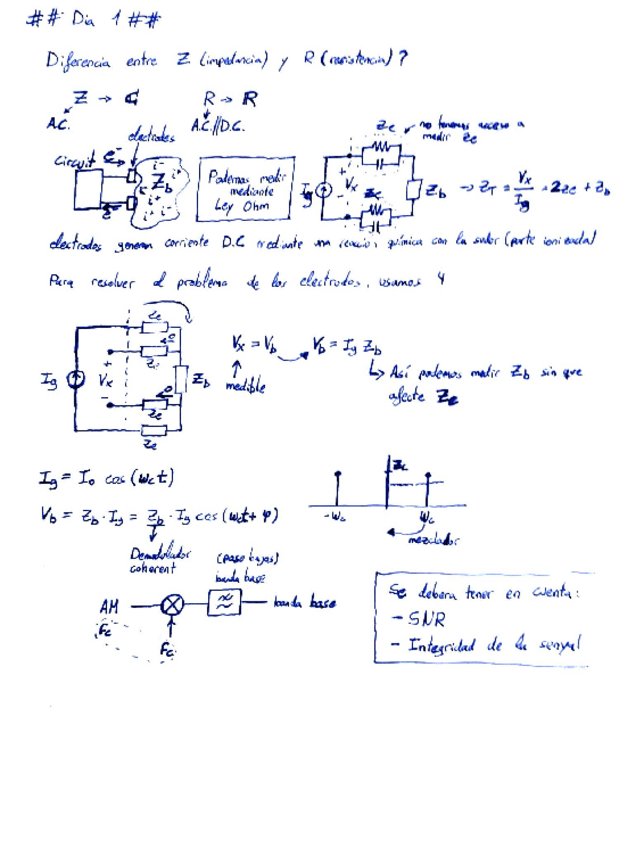 ## Dia 1 ##
Diferencia entre Z (impedancia) y R (resistencia)?
Z → ℂ
R → ℝ
A.C.
A.C.//D.C.
electrodos
Circuit
e⁻
i⁻
i⁺
Z_b
e⁻
Podemos medir
mediante
Ley Ohm
Ze
no tenemos acceso a
medir Ze
Ig
+
Vx
-
Ze
Zb → Z_T = Vx/Ig = 2Ze + Zb
electrodos generan corriente D.C mediante una reacción química con la sudor (parte ionizada)
Para resolver el problema de los electrodos, usamos 4
Ze
Ze
Ig
+
Vx
-
Zb
Ze
Ze
Vx = Vb
Vb = Ig Zb
medible
Así podemos medir Zb sin que
afecte Ze
Ig = I₀ cos(ωct)
Vb = Zb · Ig = Zb · Ig cos(ωct + φ)
-ωc
ωc
mezclador
Demodulador
coherent
(paso bajas)
banda base
AM
banda base
Fc
Fc
Se debera tener en cuenta:
- SNR
- Integridad de la senyal